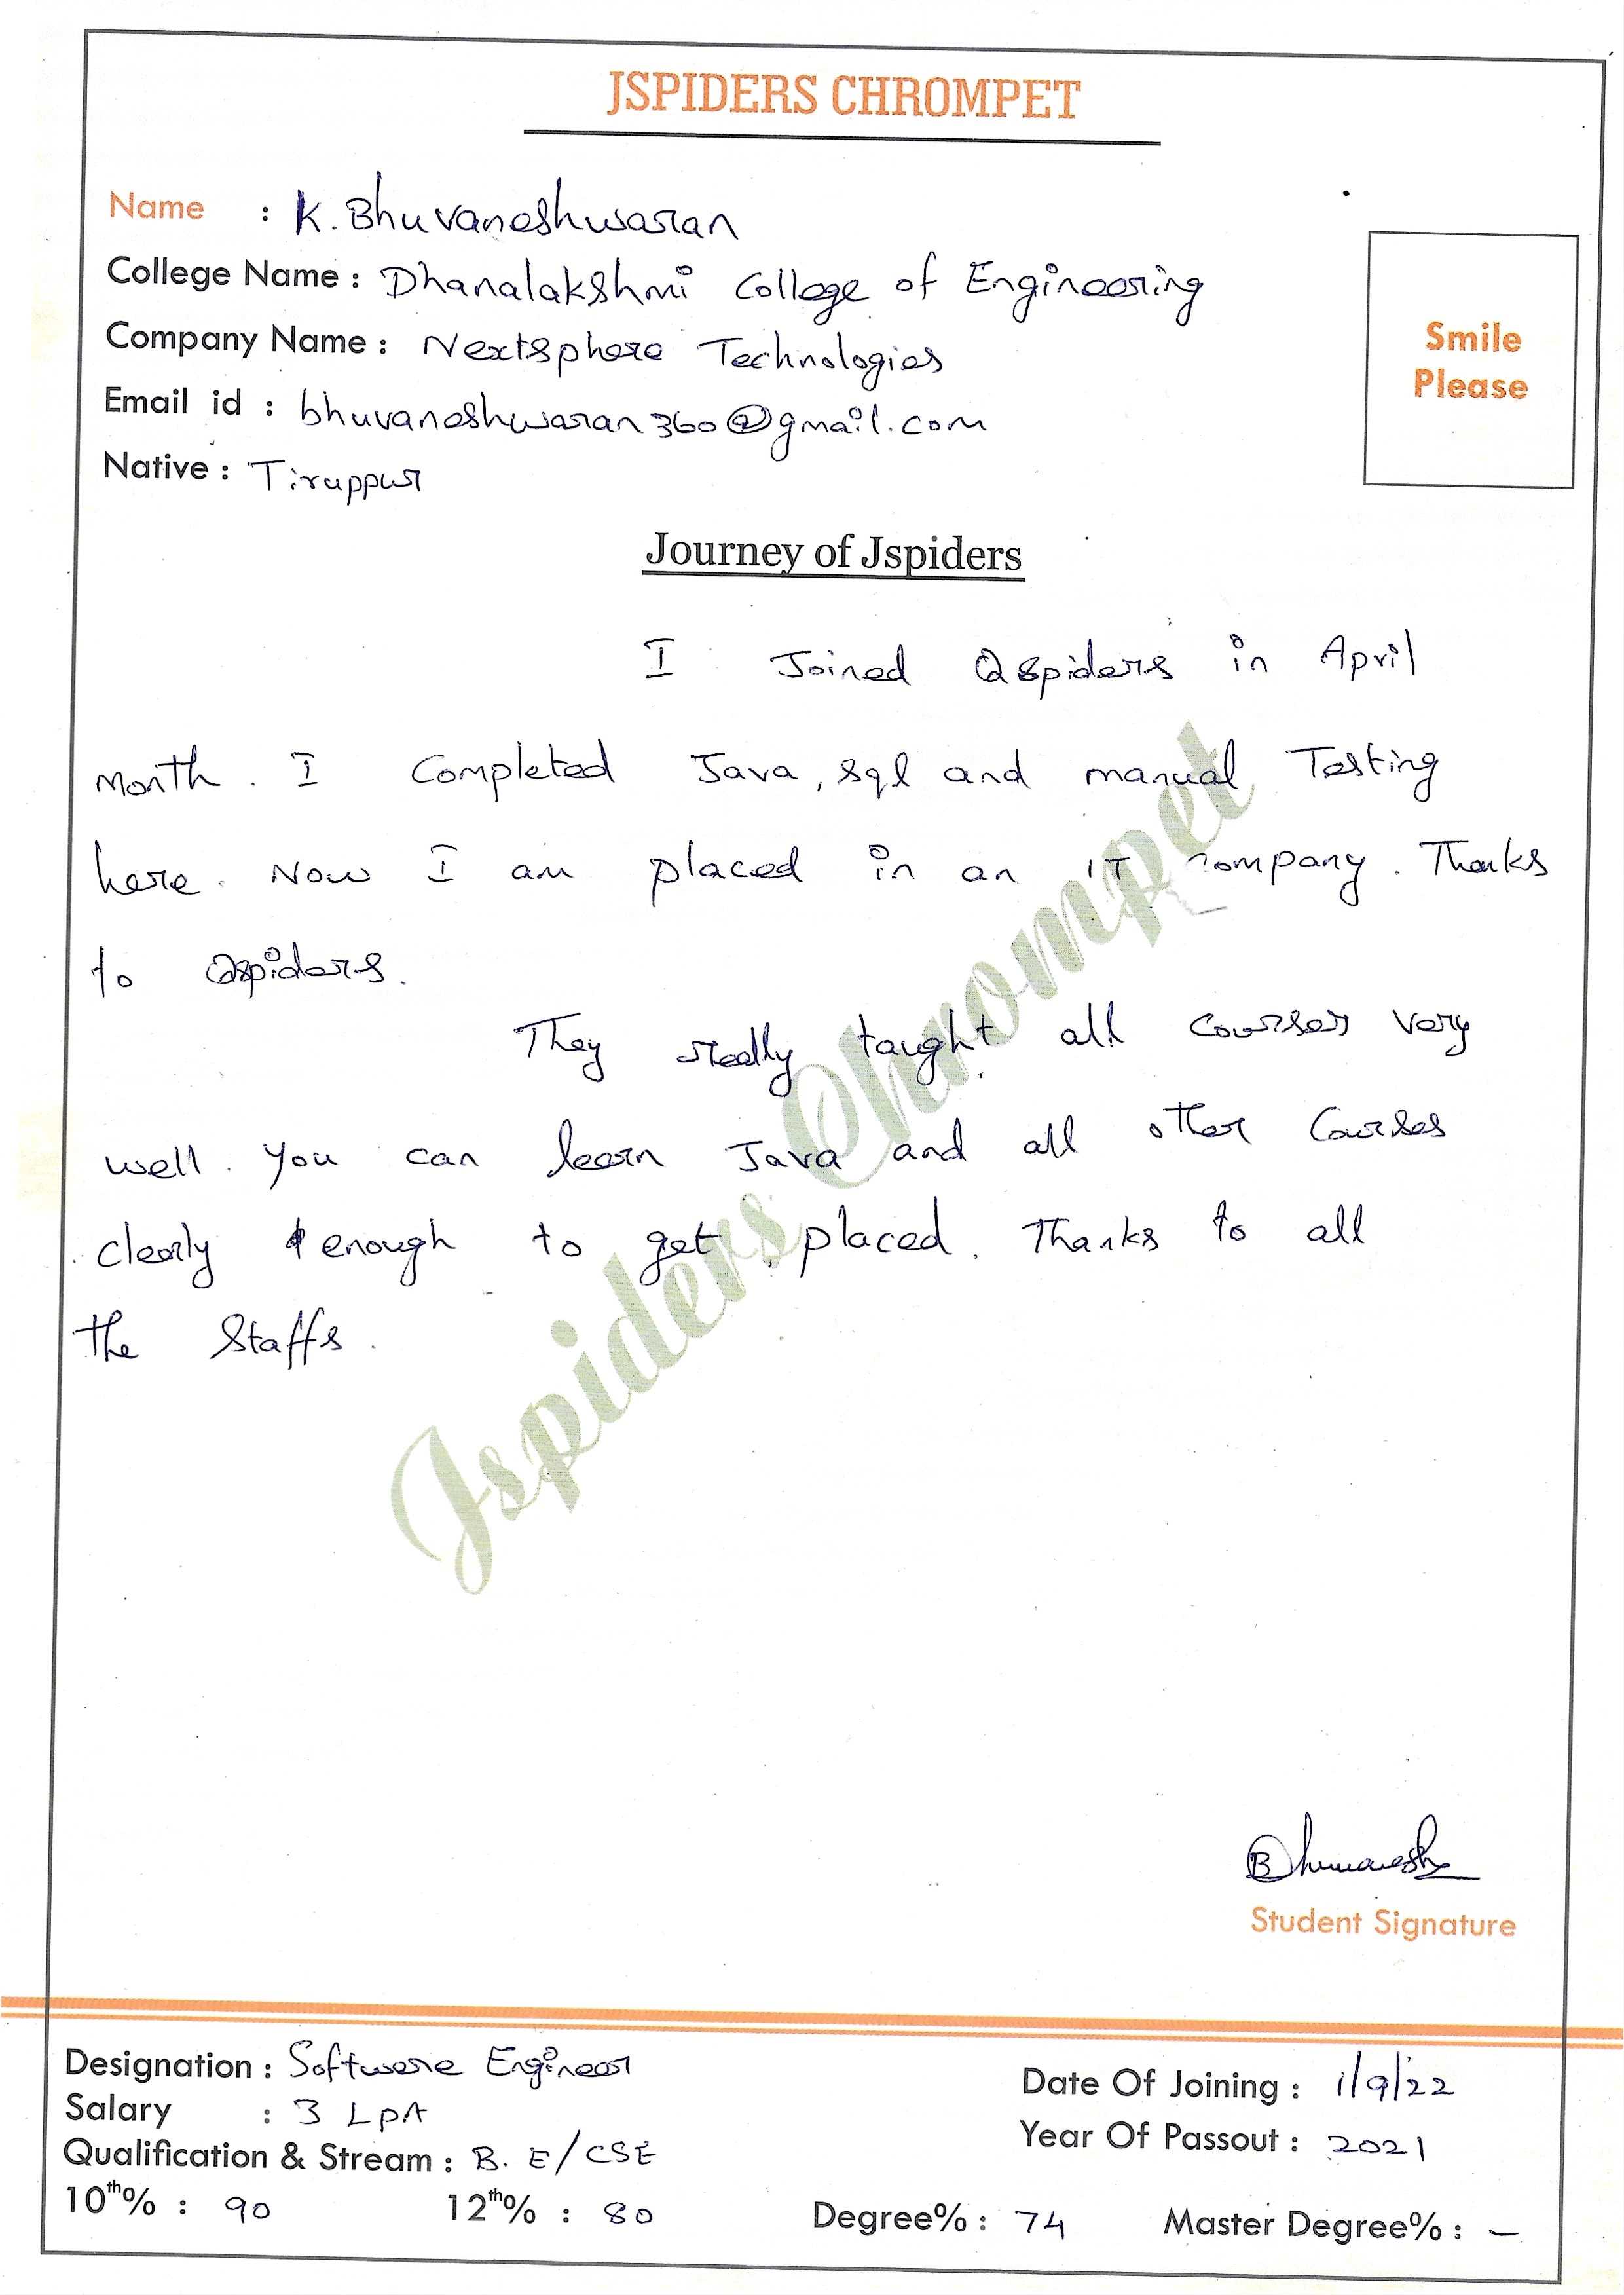 JSPIDERS CHROMPET
Name : K. Bhuvaneshwaran
College Name : Dhanalakshmi College of Engineering
Company Name : Nextsphere Technologies
Email id : bhuvaneshwaran360@gmail.com
Native : Tiruppur
Smile
Please
Journey of Jspiders
I Joined Qspiders in April
month. I Completed Java, sql and manual Testing
here. Now I am placed in an IT company. Thanks
to Qspiders.
They really taught all courses very
well. You can learn Java and all other Courses
clearly enough to get placed. Thanks to all
the Staffs.
Jspiders Chrompet
Bhuvanesh
Student Signature
Designation : Software Engineer
Date Of Joining : 1/9/22
Salary : 3 LPA
Year Of Passout : 2021
Qualification & Stream : B. E/CSE
10th% : 90 12th% : 80 Degree% : 74 Master Degree% : –